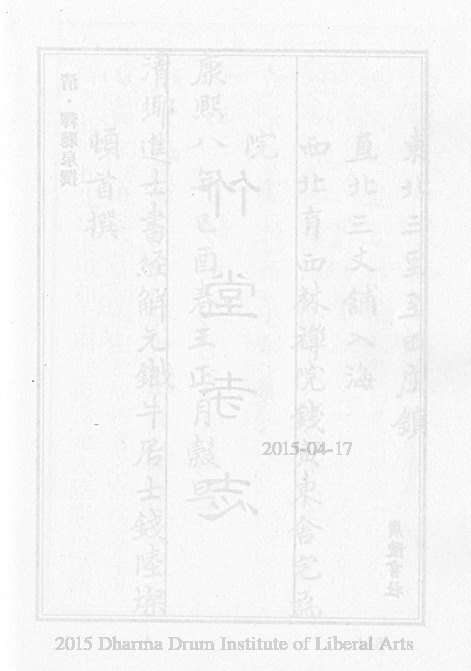 東北三里至四庄鎮
直北三丈舖入海
西北有西林禪院錢東舍宅為
院
康熙八年己酉春王正月穀旦
清鄉進士書經解元牛居士錢陸
頓首撰
竹堂寺志
清·釋聽泉撰
廣陵書社
2015-04-17
2015 Dharma Drum Institute of Liberal Arts